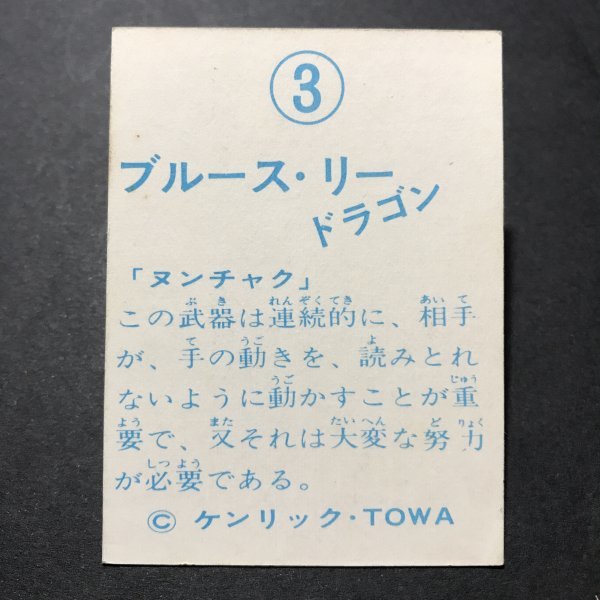 3
ブルース・リー
ドラゴン
「ヌンチャク」
この武器は連続的に、相手
が、手の動きを、読みとれ
ないように動かすことが重
要で、又それは大変な努力
が必要である。
© ケンリック・TOWA